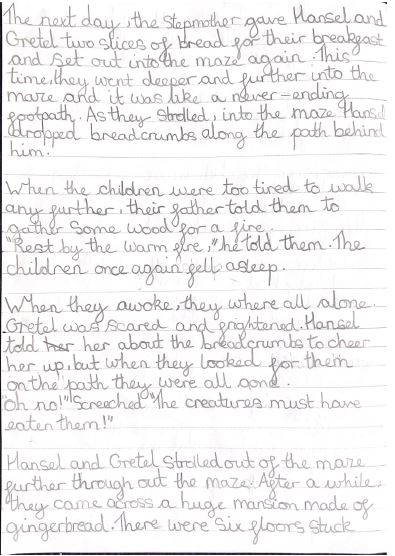 The next day, the Stepmother gave Hansel and
Gretel two slices of bread for their breakfast
and set out into the maze again. This
time, they went deeper and further into the
maze and it was like a never-ending
footpath. As they strolled, into the maze Hansel
dropped breadcrumbs along the path behind
him.
When the children were too tired to walk
any further, their father told them to
gather some wood for a fire.
"Rest by the warm fire," he told them. The
children once again fell asleep.
When they awoke, they where all alone.
Gretel was scared and frightened. Hansel
told her about the breadcrumbs to cheer
her up, but when they looked for them
on the path they were all gone.
"Oh no!" Screeched "The creatures must have
eaten them!"
Hansel and Gretel strolled out of the maze
further through out the maze. After a while,
they came across a huge mansion made of
gingerbread. There were Six floors stuck